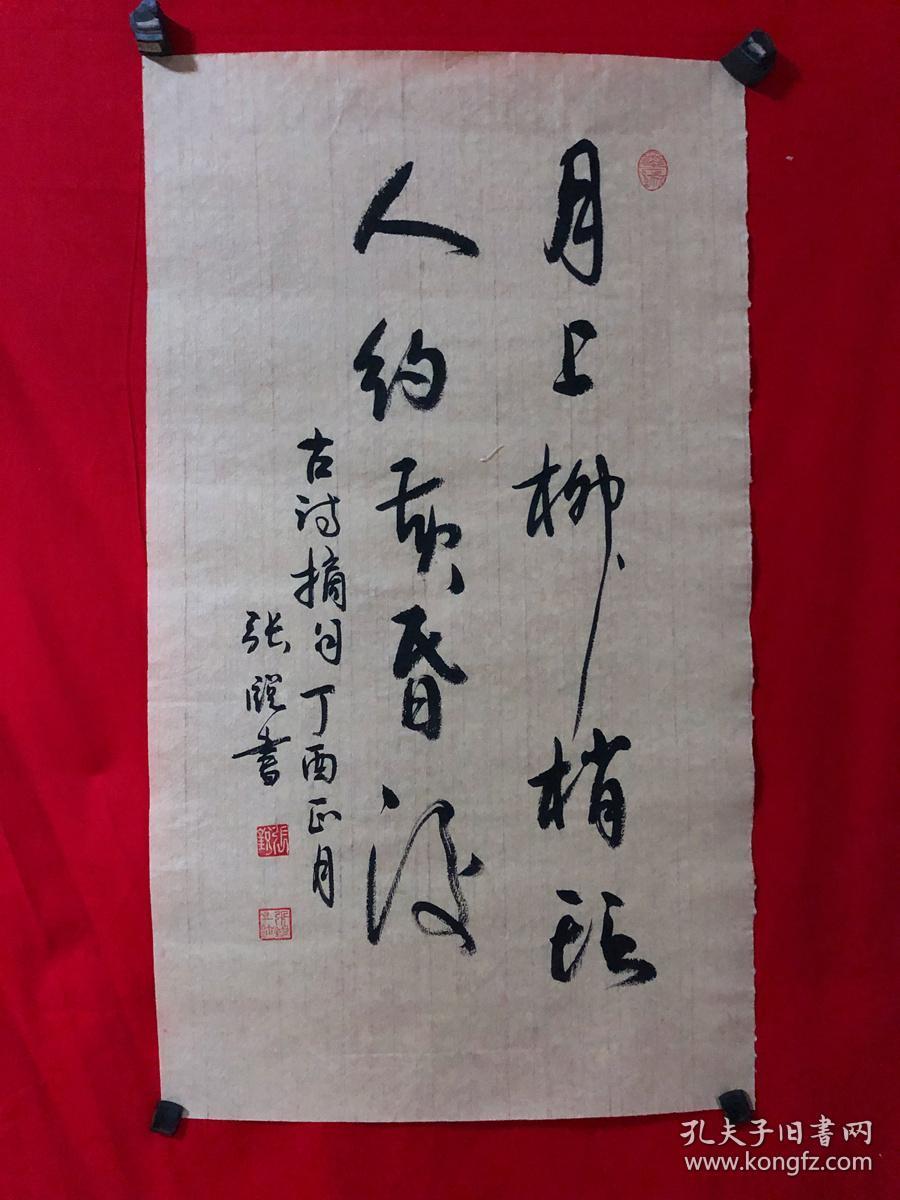 月上柳梢頭
人约黄昏後
古诗摘句丁酉正月
张锐書
张銳
孔夫子旧書网
www.kongfz.com